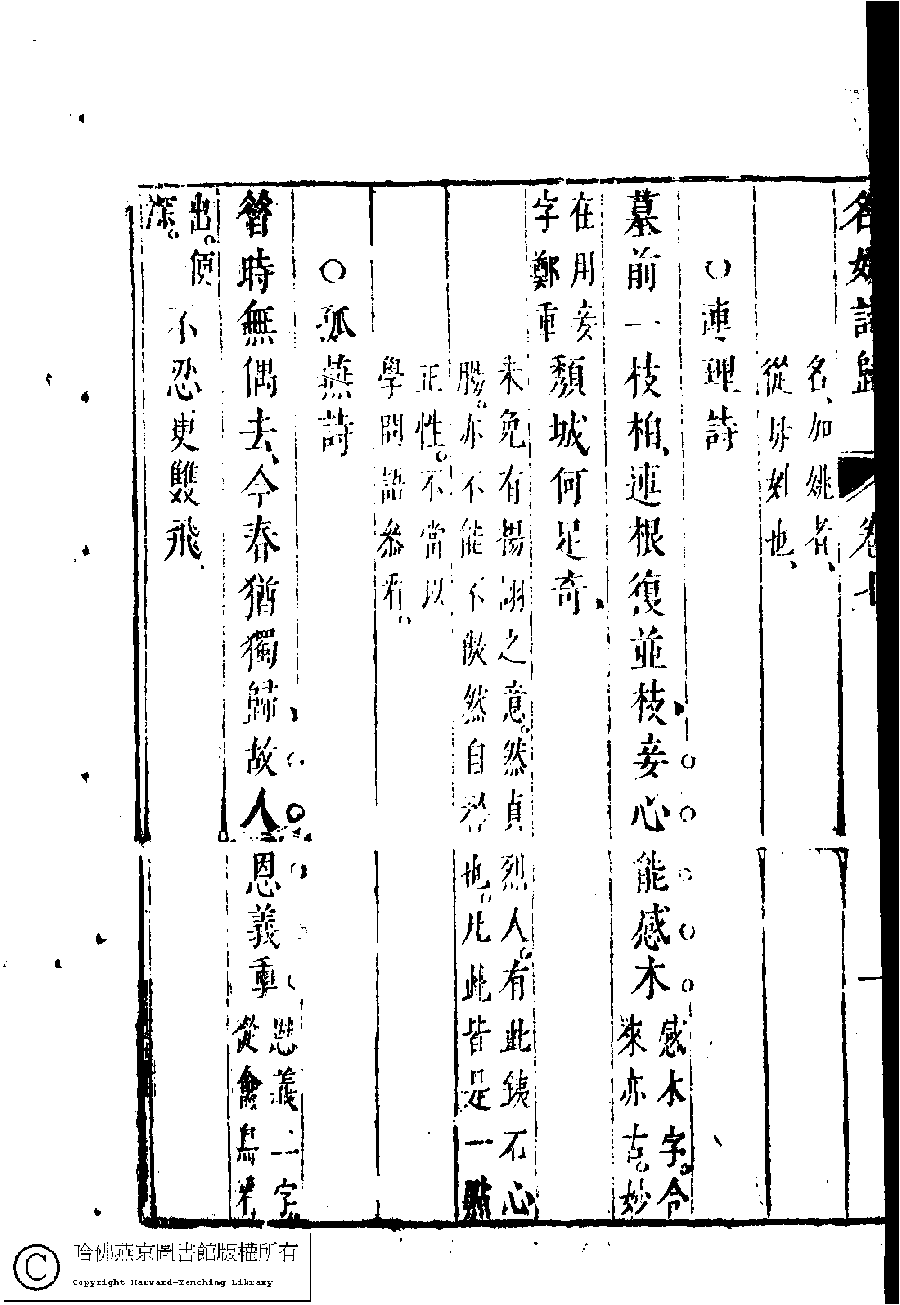 名媛詩歸 卷七 一
名加姚者
從母姓也
○連理詩
墓前一枝柏連根復並枝妾心能感木
感木字合
來亦古妙
在用妾
字鄭重
頹城何足奇
未免有揚詡之意然貞烈人有此鐵石心
勝亦不能不慨然自發也凡此皆是一點
正性不當以
學問語參看
○孤燕詩
昔時無偶去今春猶獨歸故人恩義重
恩義二字
從禽鳥來
出便
深
不忍更雙飛
哈佛燕京圖書館版權所有
Copyright Harvard-Yenching Library